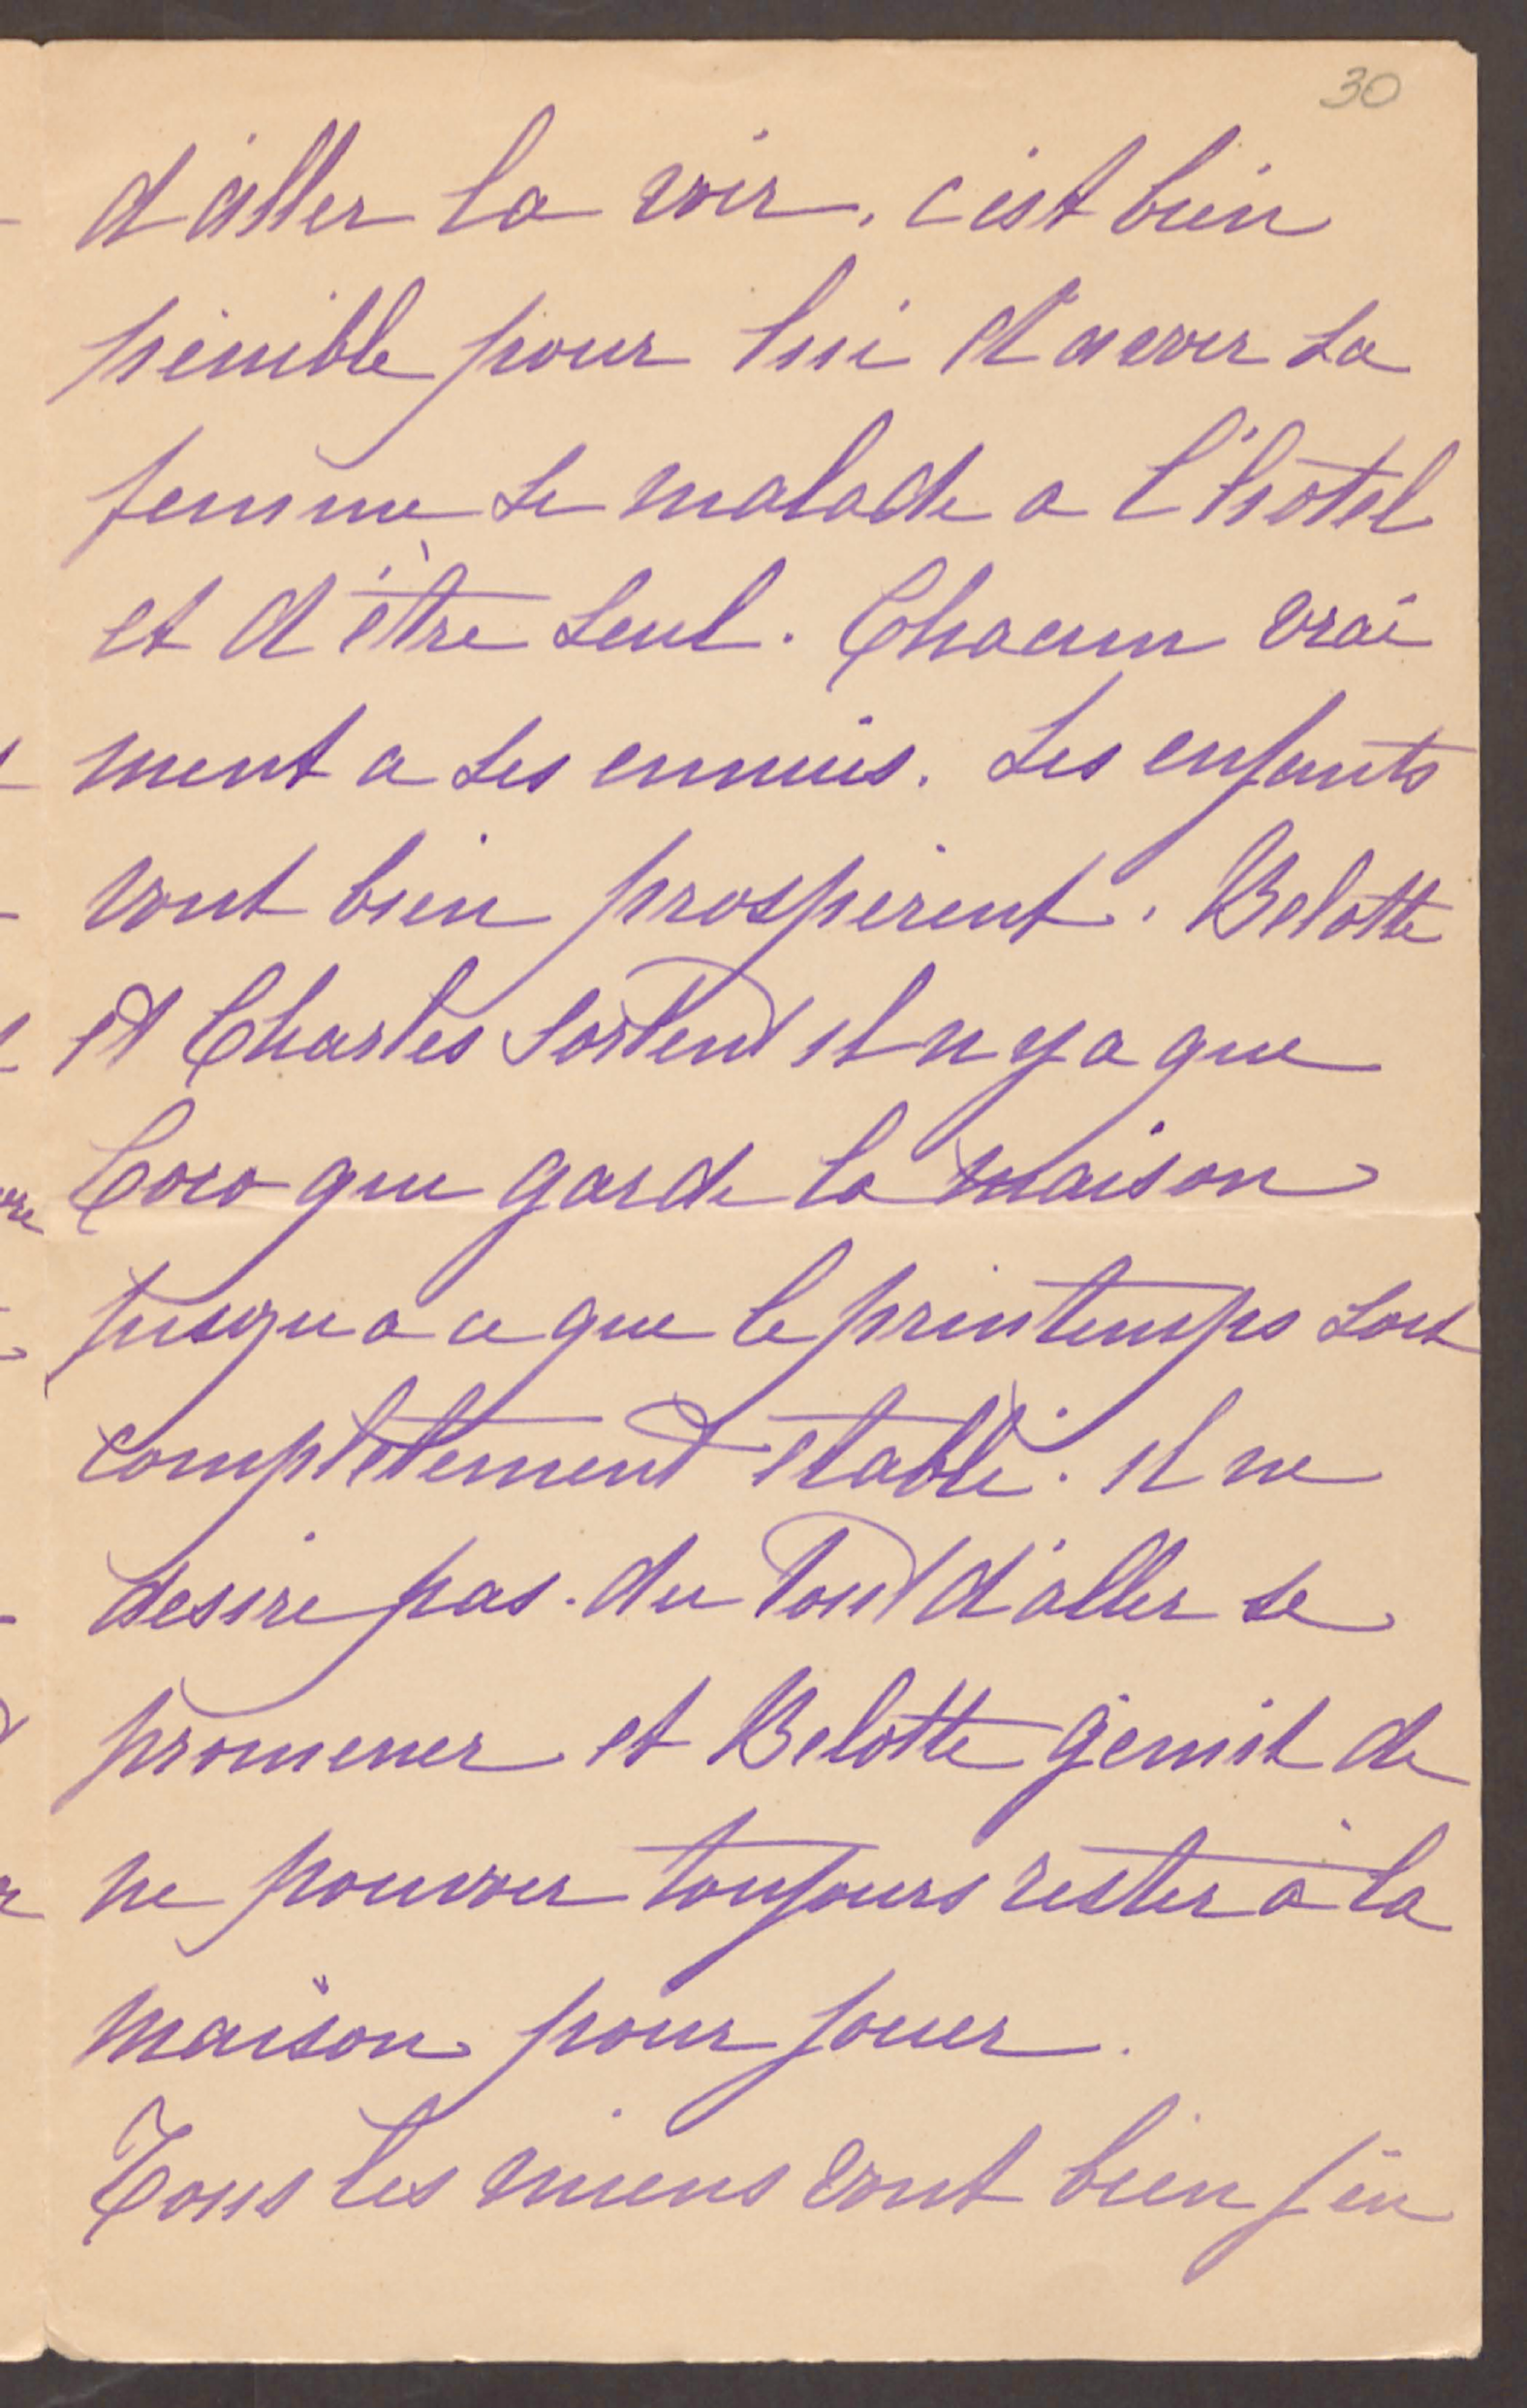 30
d'aller la voir. c'est bien
pénible pour lui d'avoir sa
femme si malade a l'hôtel
et d'être seul. Chacun vrai
ment a ses ennuis. Les enfants
vont bien prospèrent. Belotte
et Charles sortent il n y a que
Coco que garde la maison
jusqu a ce que le printemps soit
complètement établi. il ne
desire pas du tout d'aller se
promener et Belotte gemit de
ne pouvoir toujours rester à la
maison pour jouer.
Tous les miens vont bien j'en